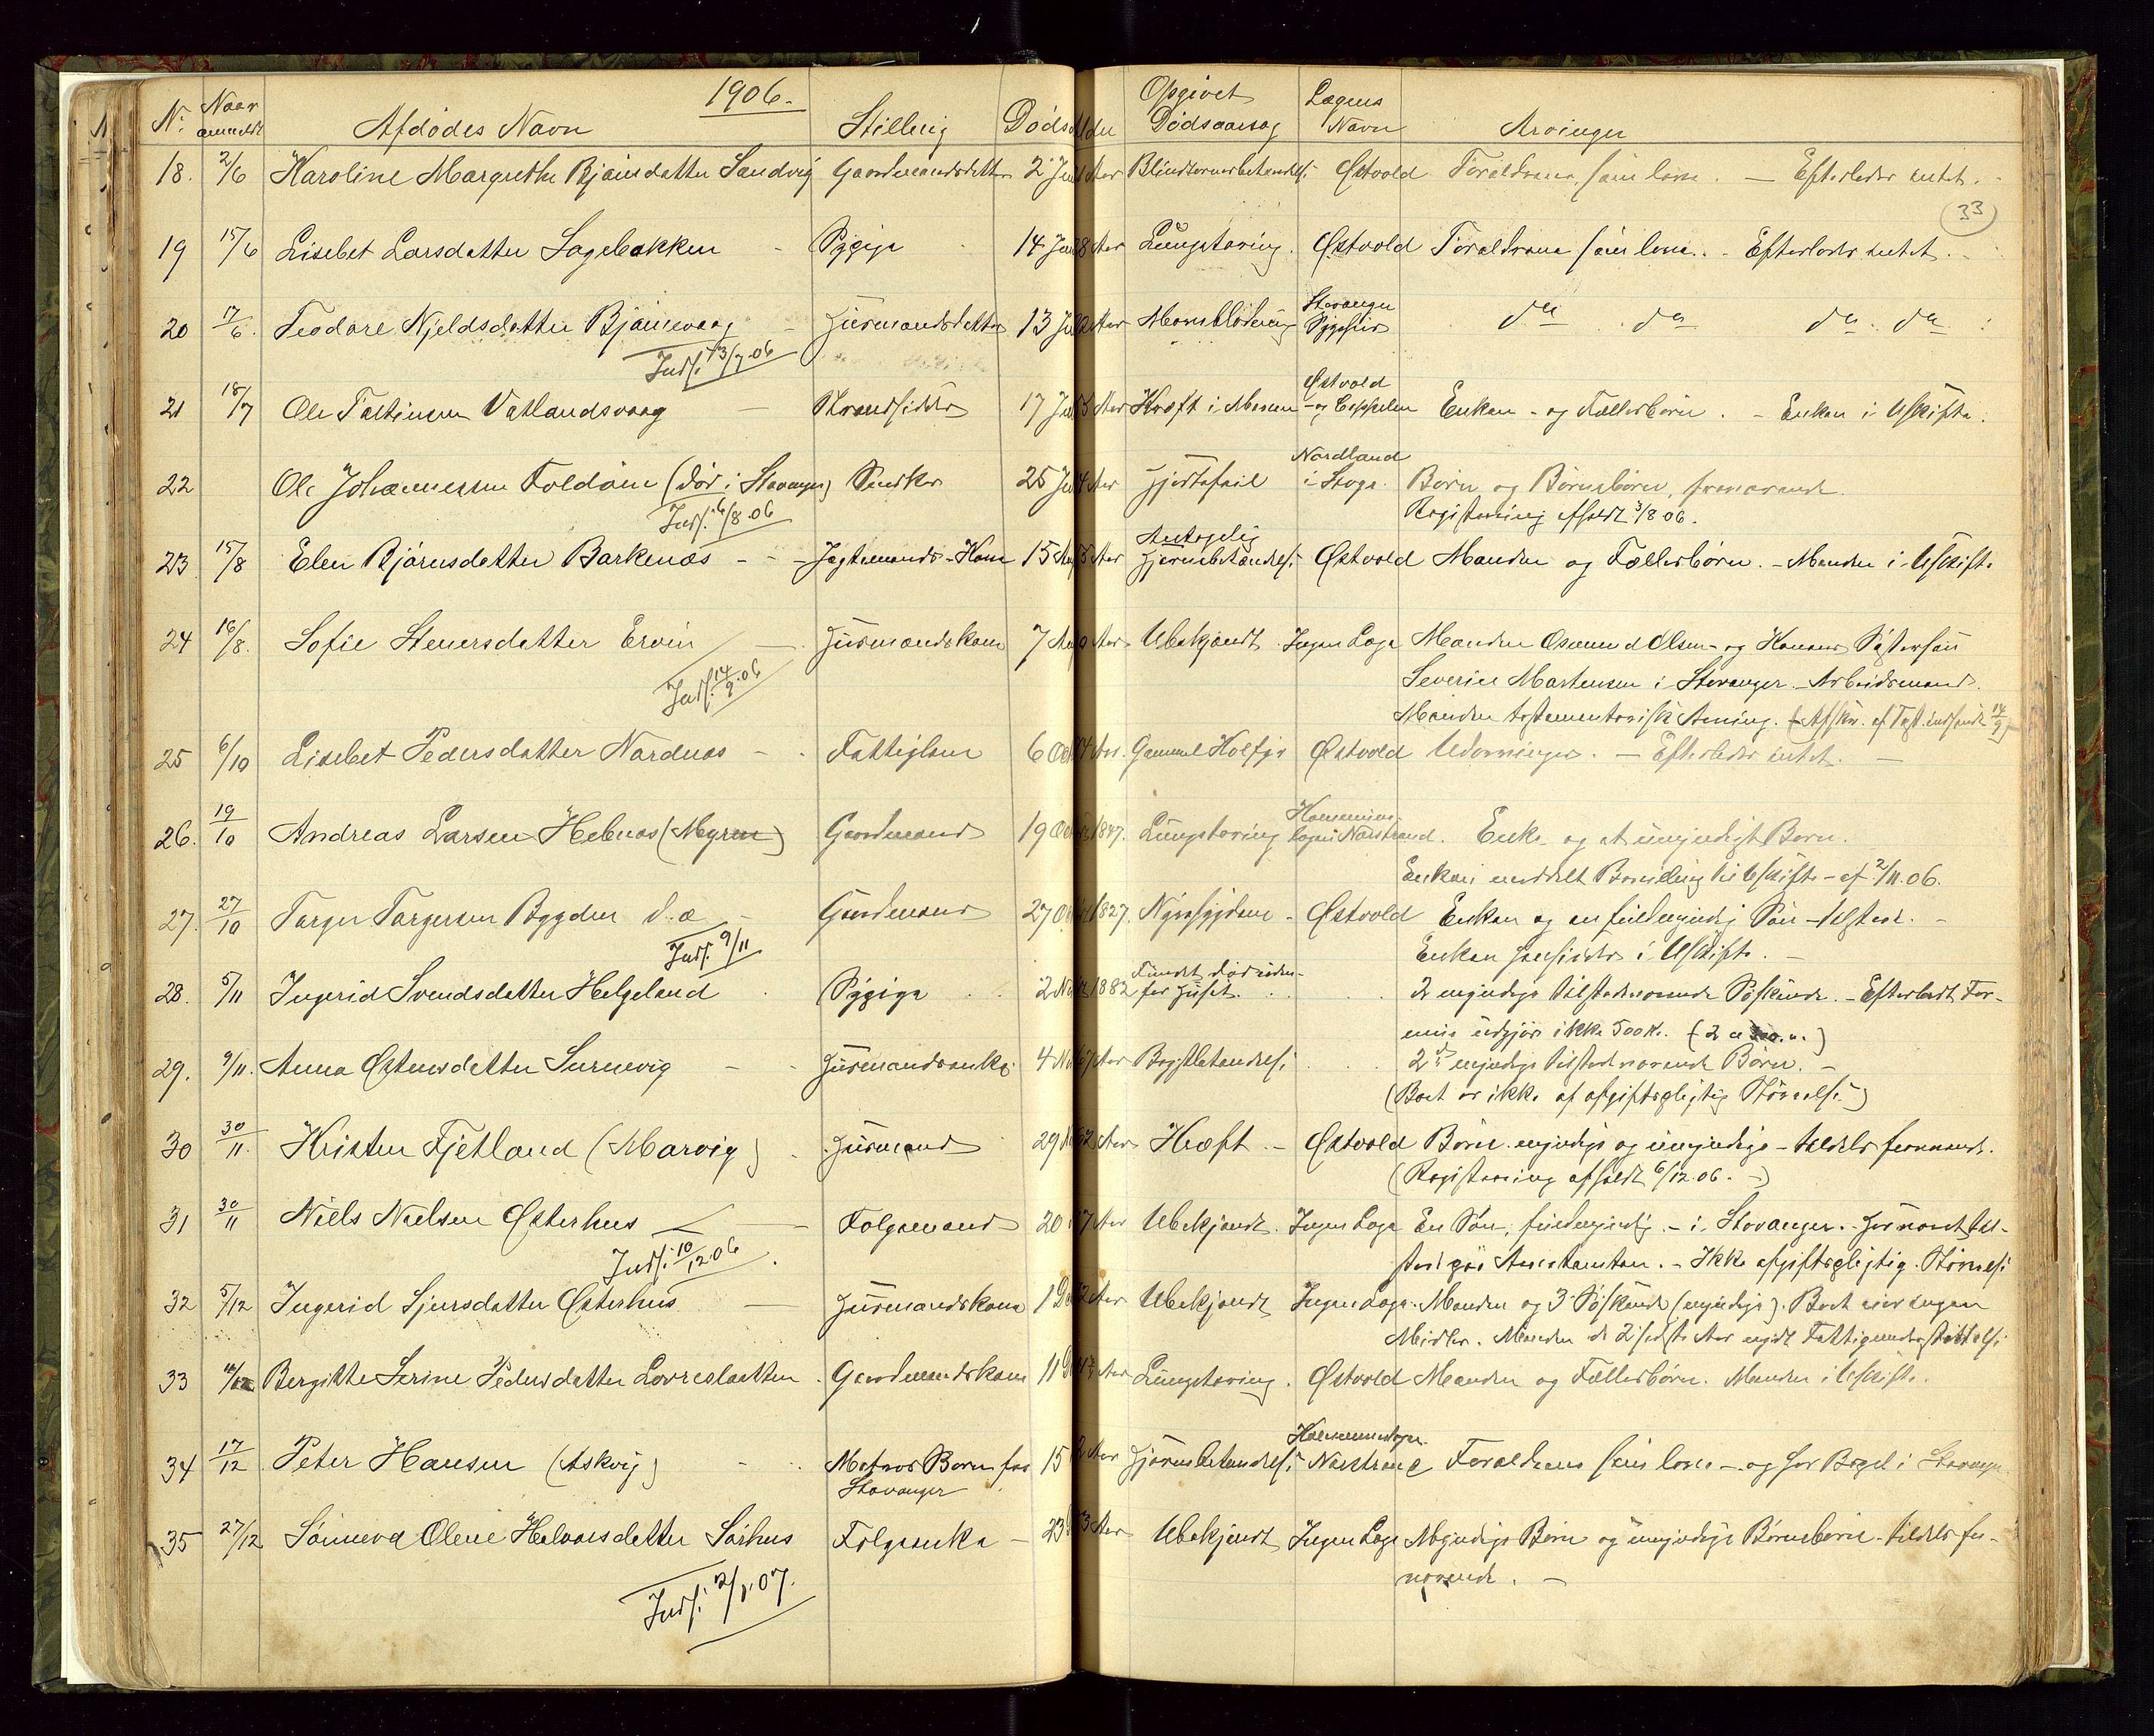 1906.
No. Naar anmeldt Afdødes Navn Stilling Døds Alder Opgivet Dødsaarsag Lægens Navn Arvinger
18. 2/6 Karoline Margrethe Bjørnsdatter Sandvig Gaardmandsdatter 2 Jun Aar Blindtarmsbetændelse Østvold Forældrene som leve. — Efterlader intet.
33
19 15/6 Lisebet Larsdatter Sagebakken Pige 14 Jun 8 Aar Lungetæring. Østvold Forældrene som leve. - Efterlader intet.
Stavanger
20 17/6. Teodore Kjeldsdatter Bjørnevaag Husmandsdatter 13 Ju Aar Sygehus do do do do
Inds. 13/7 06
Østvold
21 18/7 Ole Vatlandsvaag — Strandsidder 17 Ju Aar Kræft i Maven og Eppeland Enken og Fællesbørn. - Enken i Uskifte.
Nordland
22 Ole Johannessen Foldøen (død i Stavanger) Snedker 25 Ju 4 Aar Hjertefeil i Børn og Børnebørn, fraværende.
Inds. 6/8 06 Registrering afholdt 3/8 06.
Antagelig
23 15/8 Elen Bjørnsdatter Barkenæs - - Jægtemands-Kone 15 Aug 5 Aar Hjernebetændelse Østvold Manden og Fællesbørn. - Manden i Uskifte
24 16/8. Sofie Stenersdatter Ervin — Husmandskone 7 Aug Aar Ubekjendt Ingen Læge Manden Osmund Olsen og Konens Søstersøn
Inds. 14/9 06 Severin Martensen i Stavanger - Arbeidsmand.
Manden testamentarisk Arving. (Afskr. af Test. indsendt 14/9)
25 6/10 Lisebet Pedersdatter Nordnæs - Fattiglem 6 Oct 4 Aar. Gammel Østvold Udarvinger. — Efterlader intet. —
26. 19/10 Andreas Larsen Hebnæs (Myren) Gaardmand 19 Oct 1847. Lungetæring Nærstrand. Enke og et umyndigt Barn.
Enken meddelt Bevilling til Uskifte - af 2/11.06.
27. 27/10 Torger Torgersen Bygden d.æ - Gaardmand 27 Oct 1827. Nyresygdom - Østvold Enken og en fuldmyndig Søn - tilstede. -
Inds. 9/11 Enken hensidder i Uskifte. -
28. 5/11 Ingerid Svendsdatter Helgeland Pige 2 No 1882 Fundet død udenfor Huset. 2 myndige tilstedeværende Søskende. - Efterladt For-
mue udgjør ikke 500 K.
29. 9/11. Anna Østensdatter Surnevig - - Husmandsenke 4 No 67 Aar Brystbetændelse 2 myndige tilstedeværende Børn. -
(Boet er ikke af afgiftspligtig Størrelse)
30 30/11. Kristen Fjetland (Marvig) Husmand 29 N 62 Aar Kræft. - Østvold Børn myndige og umyndige - tildels fraværende.
(Registrering afholdt 6/12 06. -)
31 30/11 Niels Nielsen Østerhus — Folgemand 20 7 Aar Ubekjendt. Ingen Læge En Søn, fuldmyndig - i Stavanger. - Har været til-
Inds. 10/12 06. stede paa Anestedet. - Ikke afgiftspligtig Størrelse
32 5/12 Ingerid Sjursdatter Østerhus — Husmandskone 1 De 2 Aar Ubekjendt Ingen Læge. Manden og 3 Søskende (myndige). Boet eier ingen
Midler. Manden de 2 sidste Aar nydt Fattigunderstøttelse
33 11/12 Bergitte Serine Pedersdatter Lovreslætten. Gaardmandskone 11 D Aar Lungetæring. Østvold Manden og Fællesbørn. Manden i Uskifte.
34 17/12 Peter Hansen (Askvig) - Matros Barn fra Stavanger 15 2 Aar Hjernebetændelse Nærstrand Forældrene som leve - og har Bopæl i Stavanger.
35 27/12 Sønneva Olene Halvorsdatter Sørhus Folgeenke - 23 3 Aar Ubekjendt Ingen Læge Myndige Børn og umyndige Børnebørn - tildels fra-
værende. —
Inds. 2/1.07.